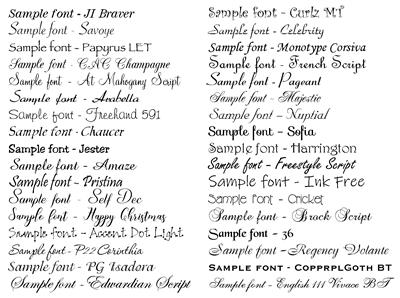 Sample font - JI Braver
Sample font - Savoye
Sample font - Papyrus LET
Sample font - CAC Champagne
Sample font - At Mahogany Script
Sample font - Arabella
Sample font - Freehand 591
Sample font - Chaucer
Sample font - Jester
Sample font - Amaze
Sample font - Pristina
Sample font - Self Dec
Sample font - Happy Christmas
Sample font - Accent Dot Light
Sample font - P22 Corinthia
Sample font - PG Isadora
Sample font - Edwardian Script
Sample font - Curlz MT
Sample font - Celebrity
Sample font - Monotype Corsiva
Sample font - French Script
Sample font - Pageant
Sample font - Majestic
Sample font - Nuptial
Sample font - Sofia
Sample font - Harrington
Sample font - Freestyle Script
Sample font - Ink Free
Sample font - Cricket
Sample font - Brock Script
Sample font - 36
Sample font - Regency Volante
Sample font - CopprplGoth BT
Sample font - English 111 Vivace BT